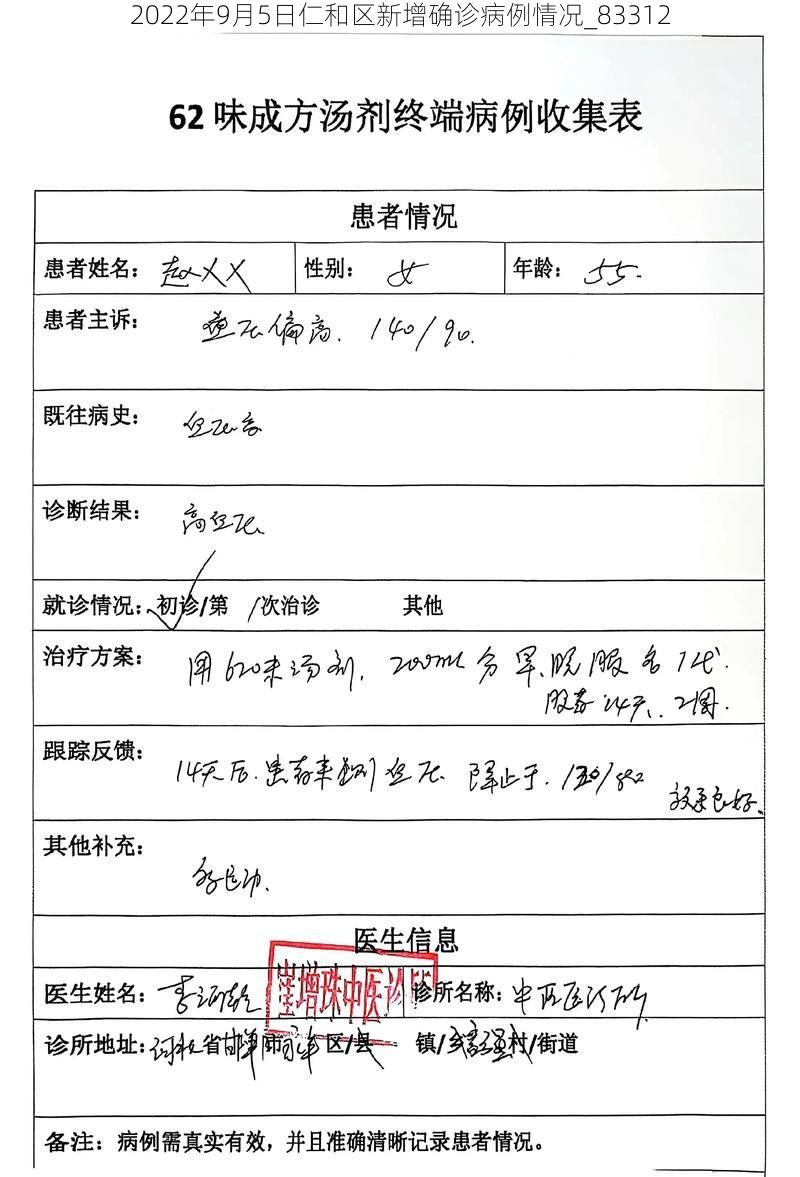 2022年9月5日仁和区新增确诊病例情况_83312
62味成方汤剂终端病例收集表
患者情况
患者姓名：赵XX 性别：女 年龄：55.
患者主诉：血压偏高. 140/90.
既往病史：血压高
诊断结果：高血压
就诊情况：初诊/第 /次治诊 其他
治疗方案：用620味汤剂. 200ml 分早.晚服各1代.
服药14天. 2周.
跟踪反馈：14天后.患者来测血压
效果良好.
其他补充：
医生信息
崔增珠中医诊所
医生姓名：李 诊所名称：中医诊所
诊所地址：河北省邯郸市 区/县 镇/乡 村/街道
备注：病例需真实有效，并且准确清晰记录患者情况。